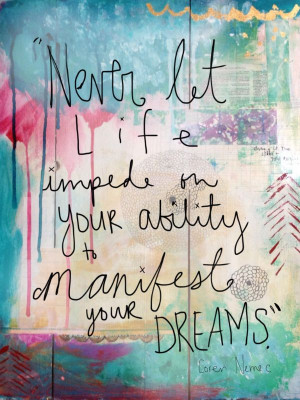 "Never let
Life
impede on
YOUR ability
to
manifest
your
DREAMS."
Corin Nemec